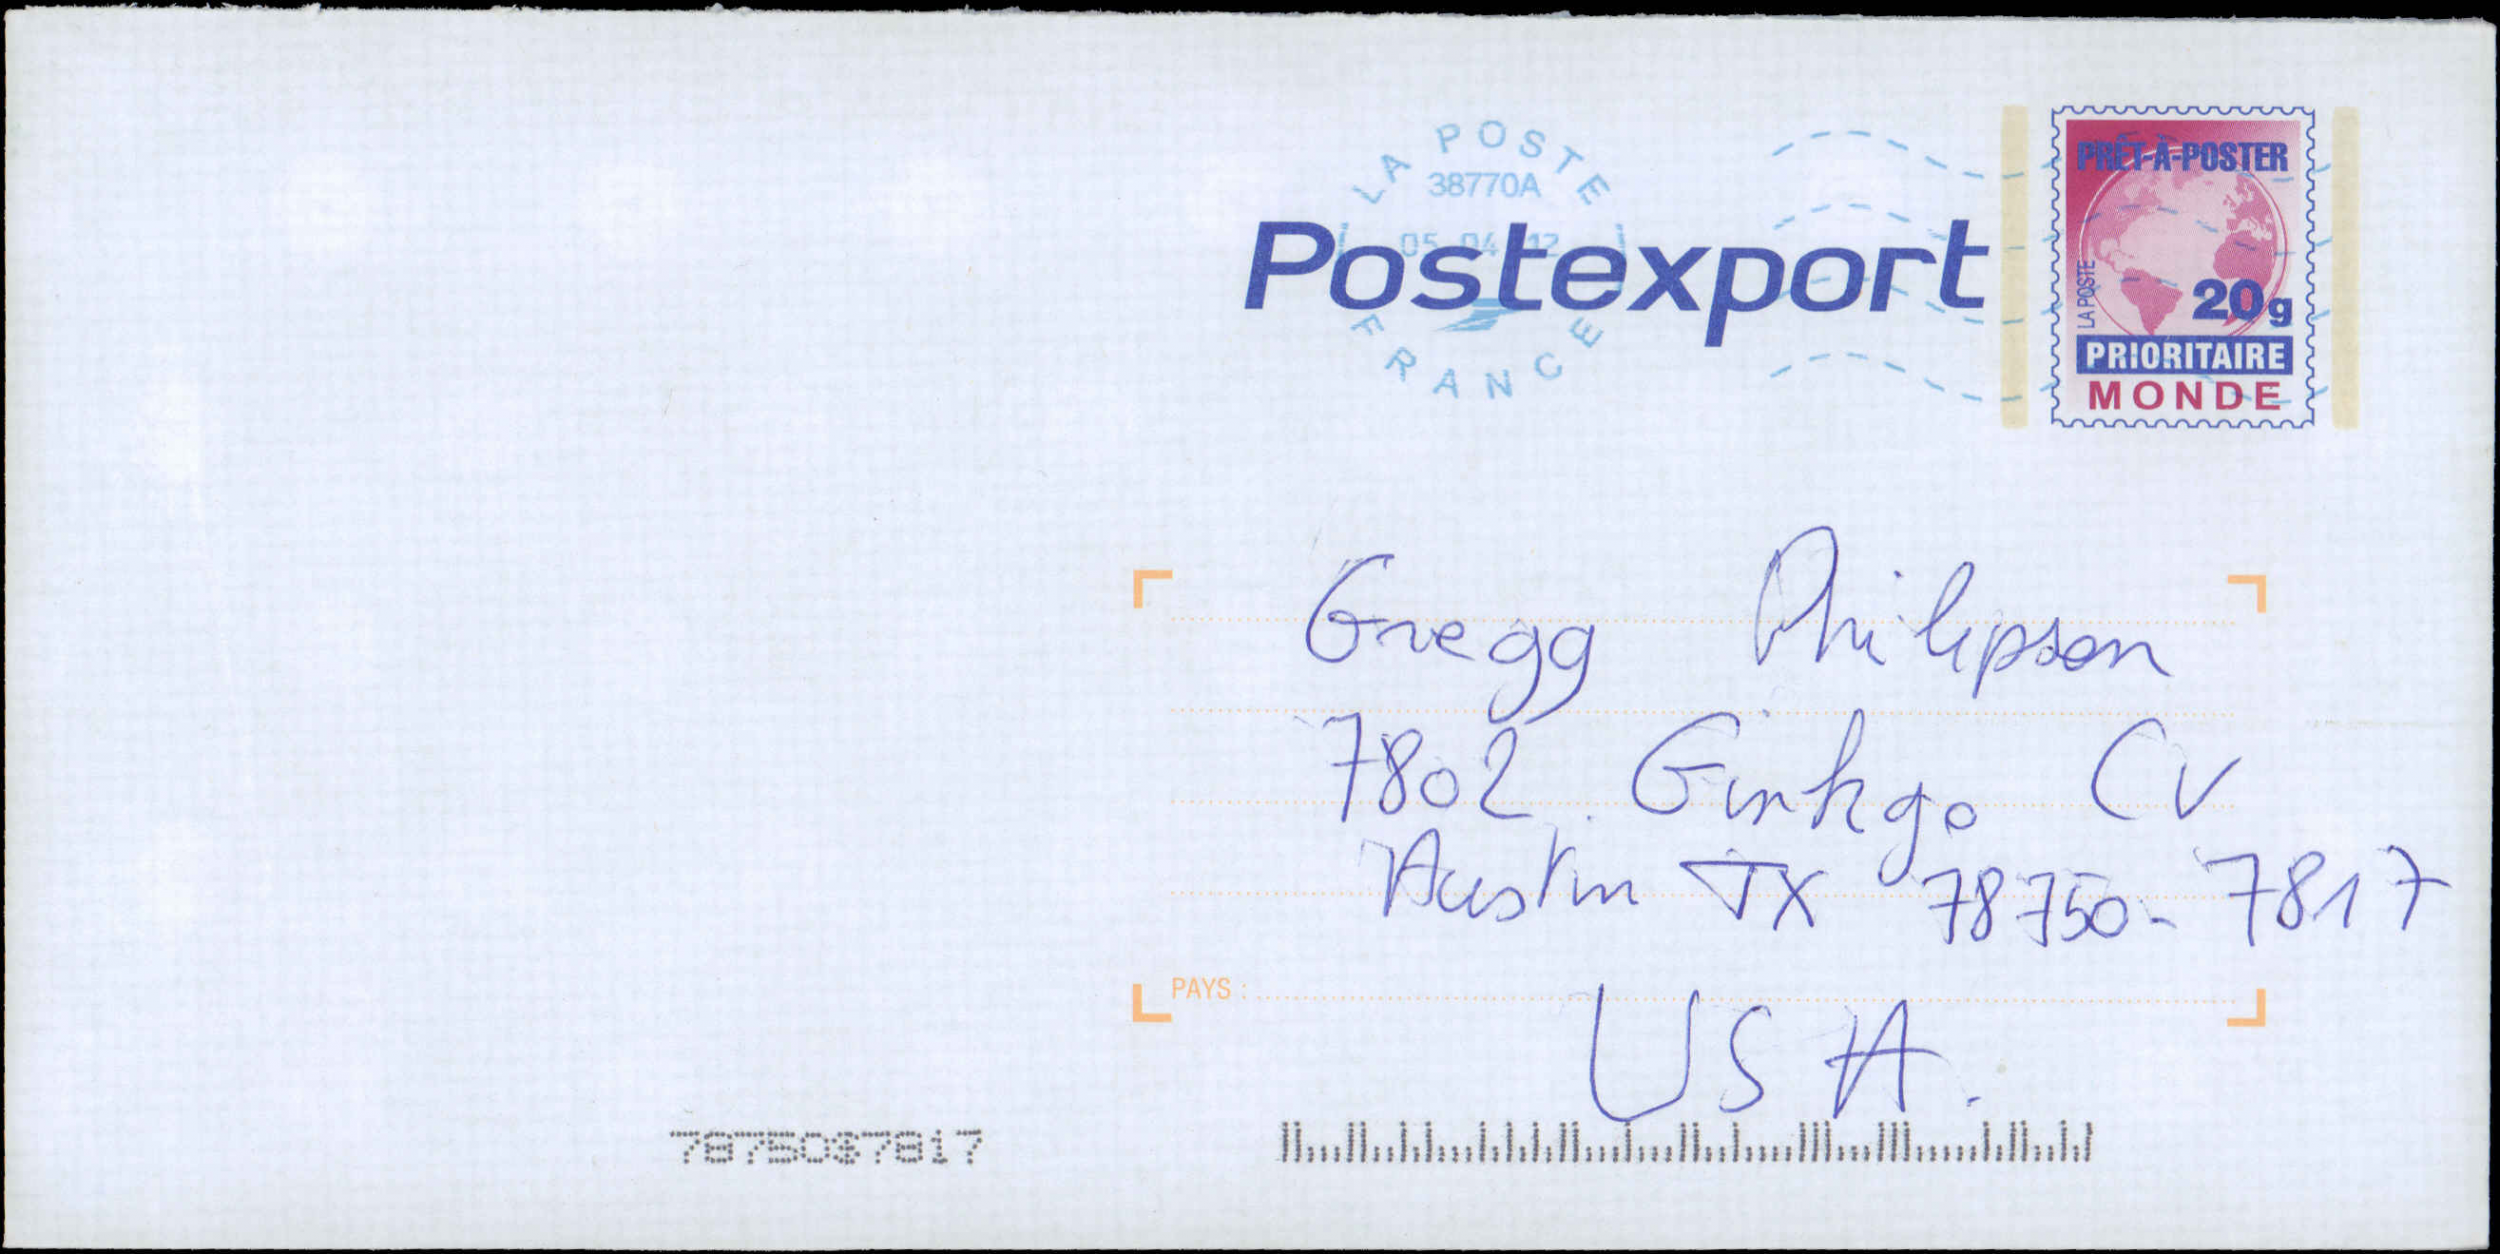 LA POSTE
38770A
05-04-12
FRANCE
Postexport
PRÊT-À-POSTER
LA POSTE
20g
PRIORITAIRE
MONDE
Gregg Philipson
7802 Ginkgo CV
Austin TX 78750-7817
PAYS :
USA.
78750$7817